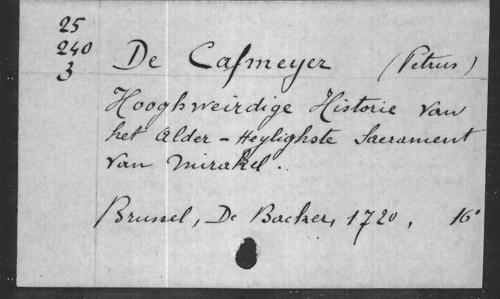 25
240
3
De Cafmeyer (Petrus)
Hooghweirdige Historie van
het Alder-Heylighste Sacrament
van Mirakel.
Brussel, De Backer, 1720, 16°